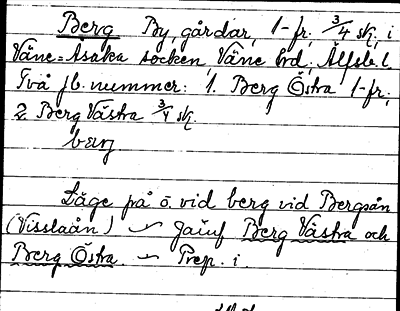 Berg By, gårdar, 1-fr. 3/4 sk, i
Väne-Åsaka socken, Väne hrd, Älfsb. l.
Två jb. nummer: 1. Berg Östra 1-fr,
2 Berg Västra 3/4 sk.
bærj
Läge på ö. vid berg vid Bergsån
(Visslaån) ~ Jämf Berg Västra och
Berg Östra. ~ Prep. i.